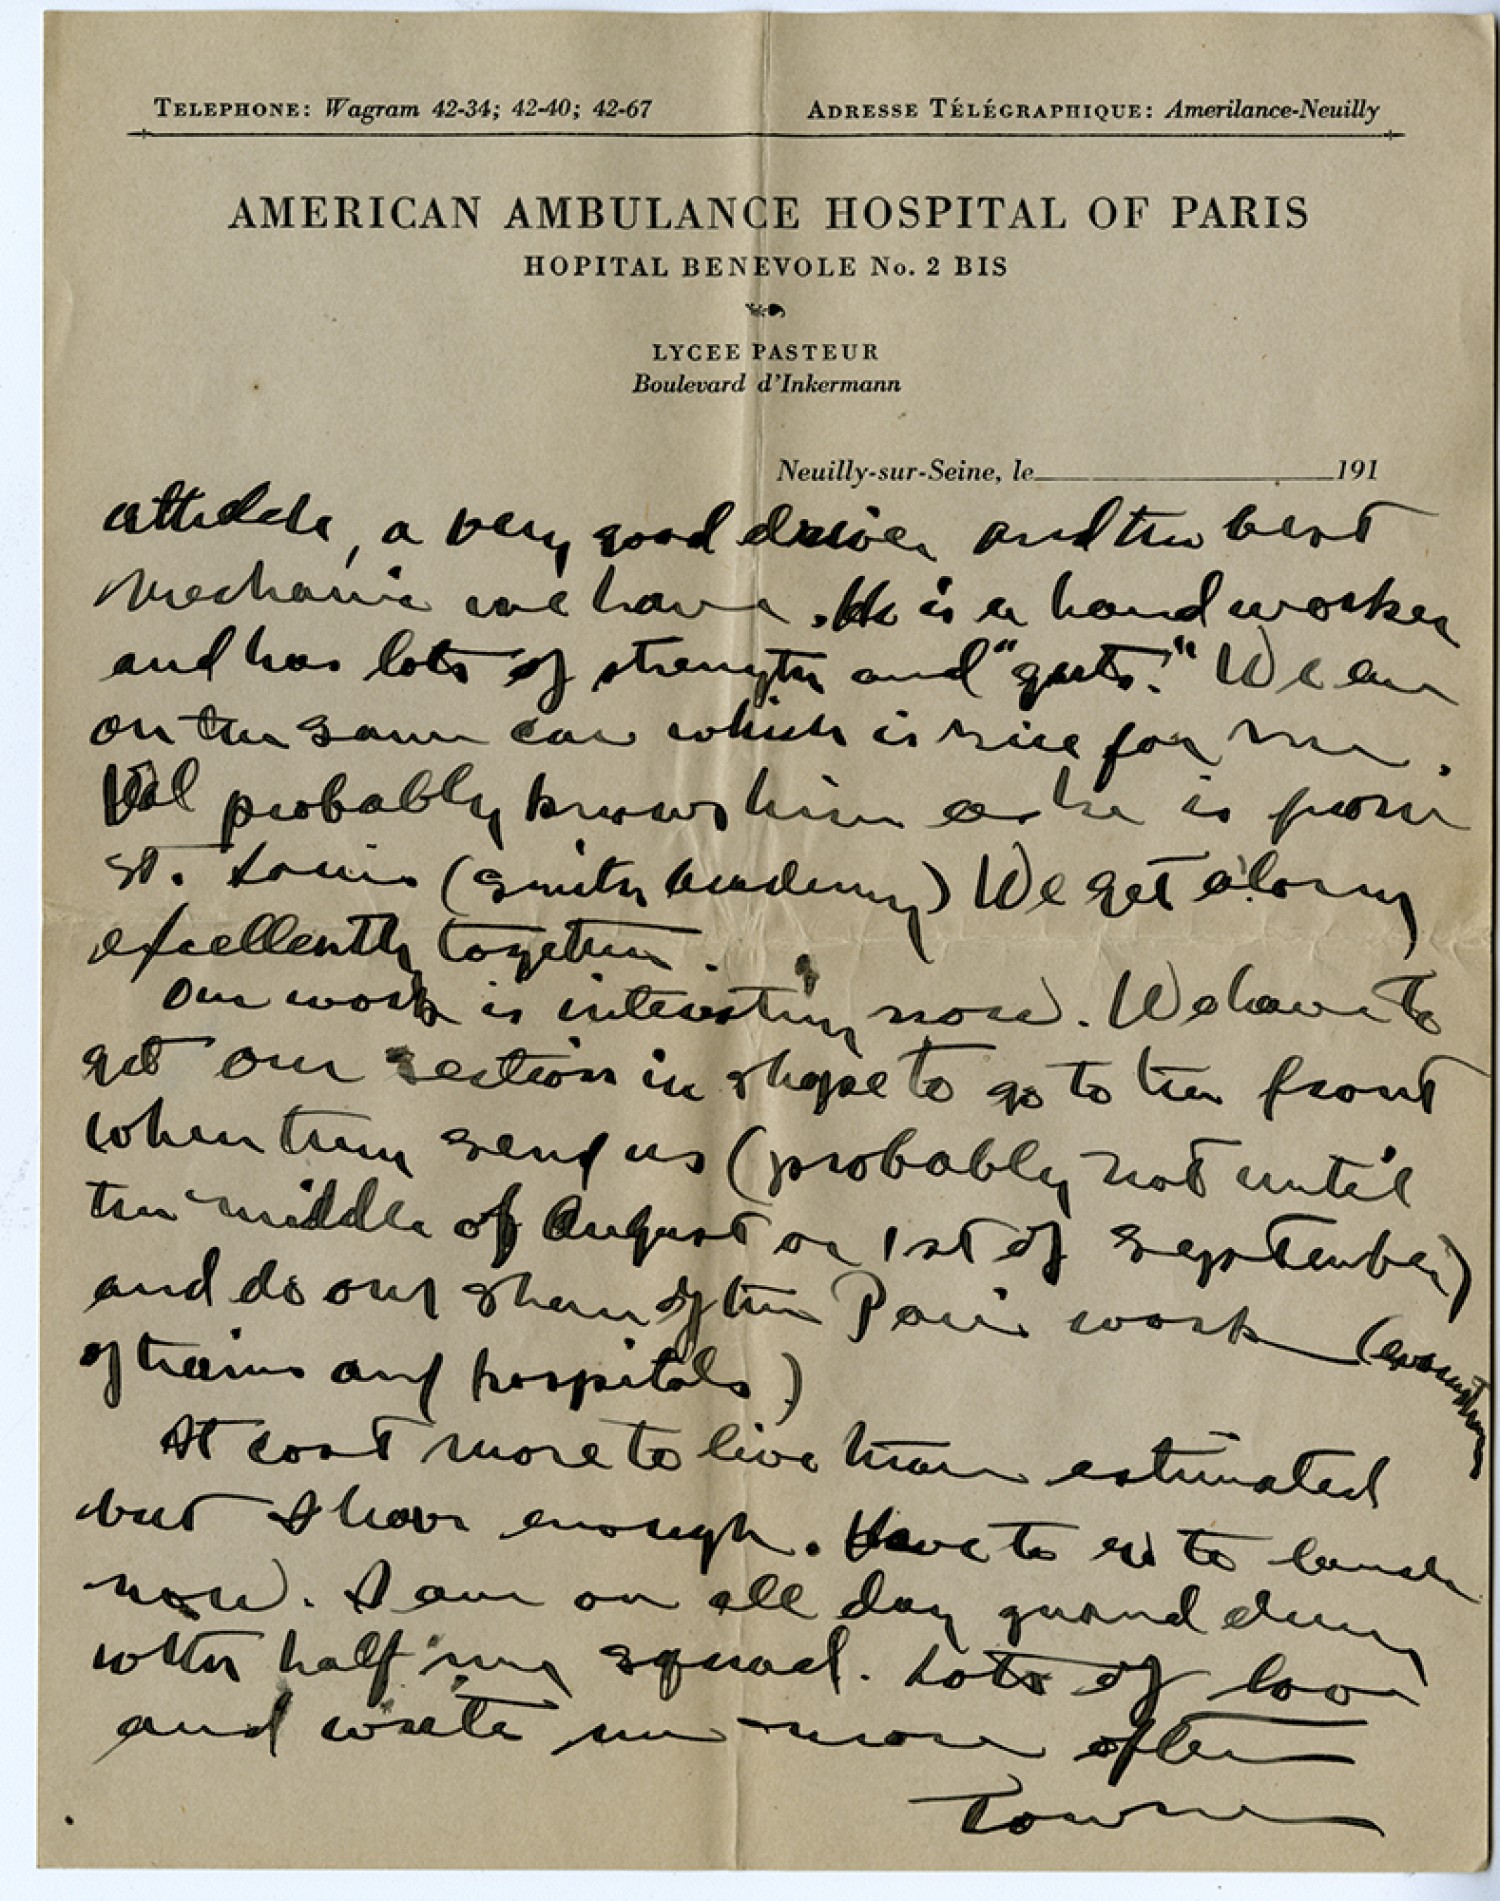 TELEPHONE: Wagram 42-34; 42-40; 42-67
ADRESSE TÉLÉGRAPHIQUE: Amerilance-Neuilly
AMERICAN AMBULANCE HOSPITAL OF PARIS
HOPITAL BENEVOLE No. 2 BIS
LYCEE PASTEUR
Boulevard d'Inkermann
Neuilly-sur-Seine, le 191
athlete, a very good driver and the best
mechanic we have. He is a hard worker
and has lots of strength and "guts." We are
on the same car which is nice for me.
Val probably knows him as he is from
St. Louis (Smith Academy) We get along
excellently together.
Our work is interesting now. We have to
get our section in shape to go to the front
when they send us (probably not until
the middle of August or 1st of September)
and do our share of the Paris work (evacuating
of trains and hospitals)
It cost more to live than estimated
but I have enough. Have to go to lunch
now. I am on all day guard duty
with half my squad. Lots of love
and write me more often
Towne